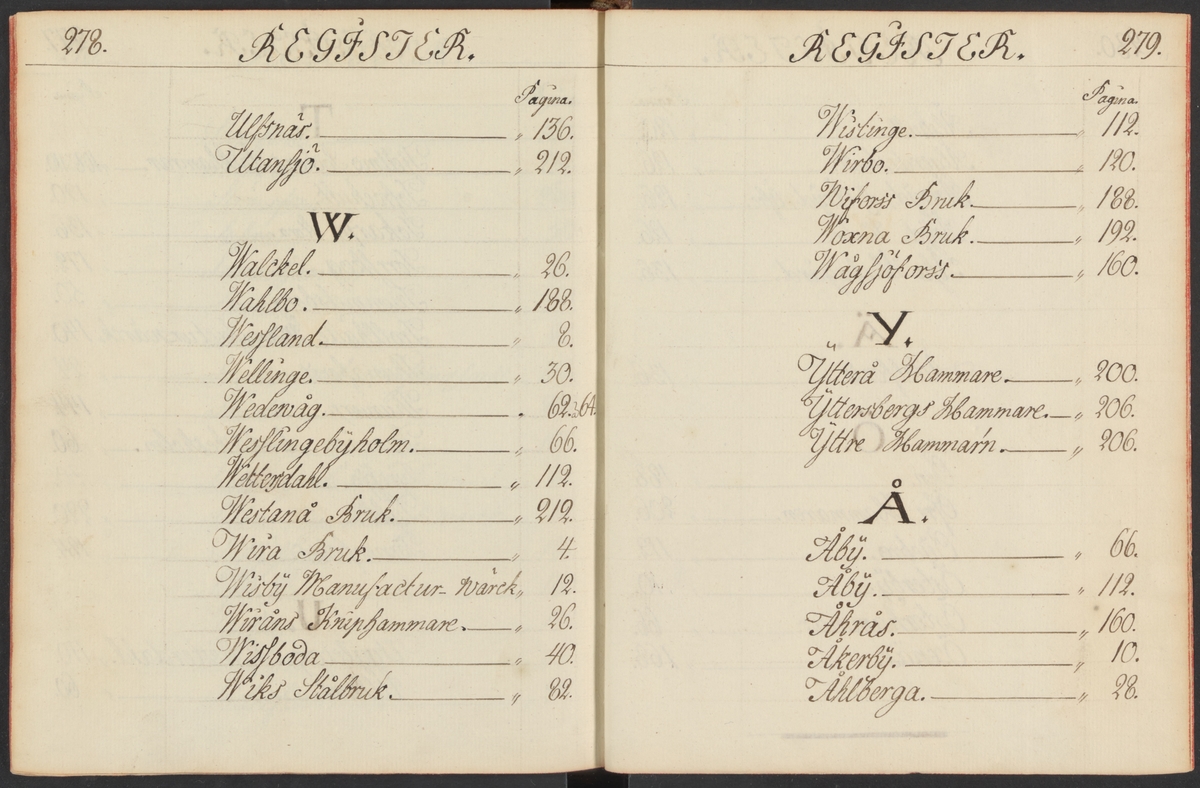 278. REGISTER.
Pagina.
Ulfsnäs. „ 136.
Utansjö. „ 212.
W.
Walckel. „ 26.
Wahlbo. „ 188.
Wessland. „ 8.
Wellinge. „ 30.
Wedewåg. . 62. 64.
Wesslingebÿholm. „ 66.
Wetterdahl. „ 112.
Westanå Bruk. „ 212.
Wira Bruk. „ 4.
Wisbÿ Manufactur-wärck „ 12.
Wiråns Kniphammare. „ 26.
Wissboda „ 40.
Wiks Stålbruk. „ 82.
REGISTER. 279.
Pagina.
Wistinge. „ 112.
Wirbo. „ 120.
Wiforss Bruk. „ 188.
Woxna Bruk. „ 192.
Wågsjöforss. „ 160.
Y.
Ÿtterå Hammare. „ 200.
Ÿttersbergs Hammare. „ 206.
Ÿttre Hammar'n. „ 206.
Å.
Åbÿ. „ 66.
Åbÿ. „ 112.
Åhrås. „ 160.
Åkerbÿ. „ 10.
Åhlberga. „ 28.